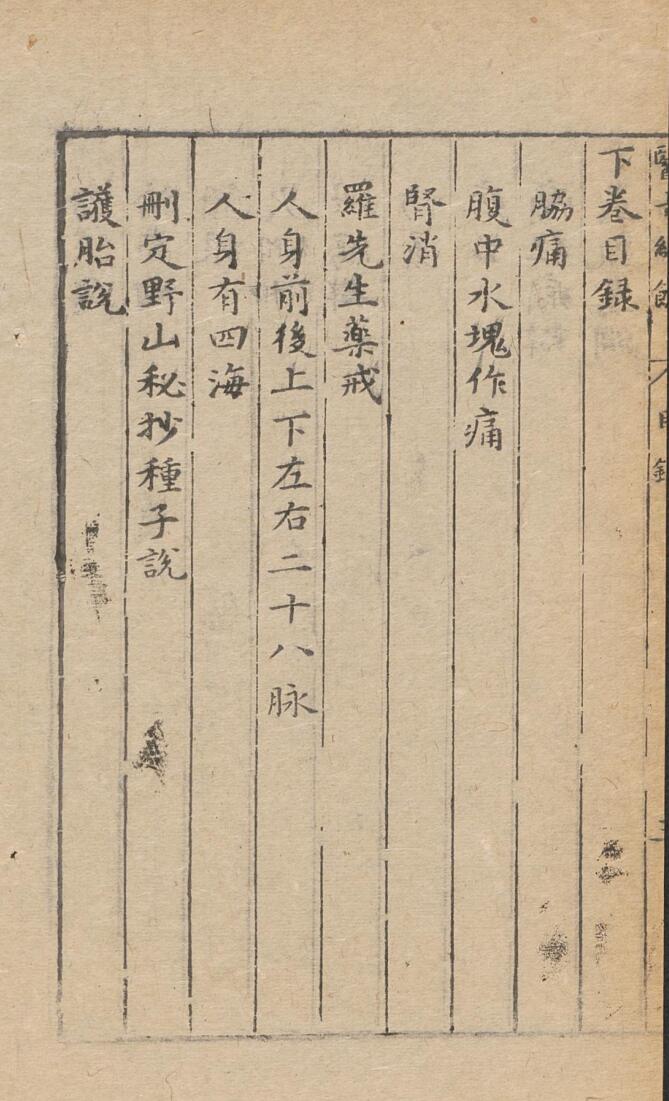 目錄
下卷目録
脇痛
腹中水塊作痛
腎消
羅先生藥戒
人身前後上下左右二十八脉
人身有四海
刪定野山秘抄種子說
護胎說